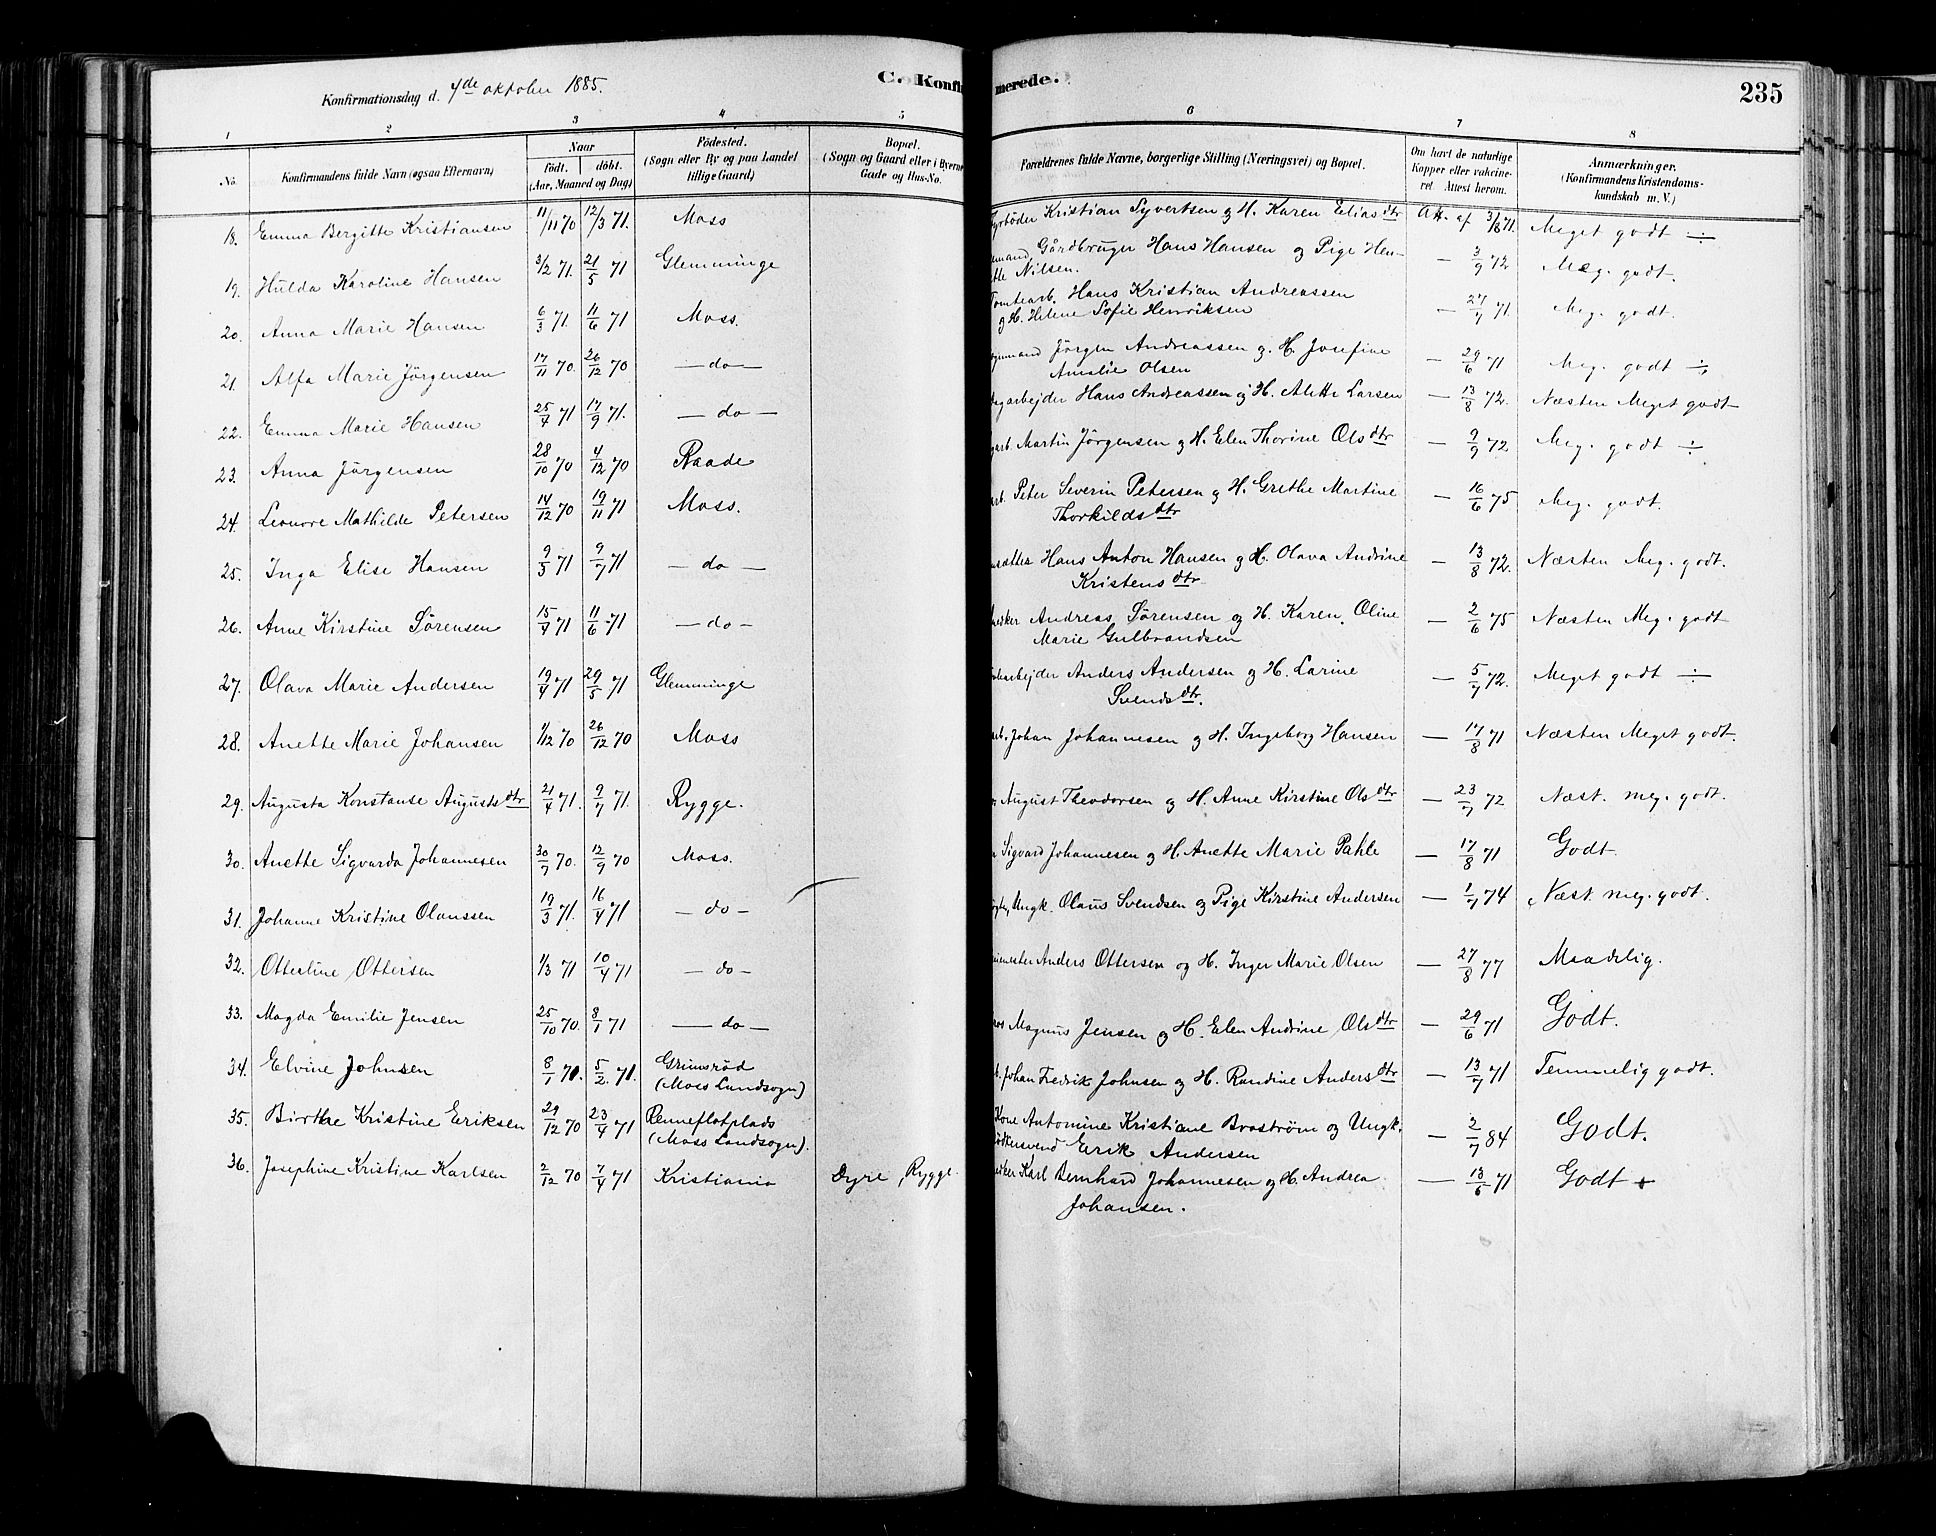 235
C. Konfirmerede.
Konfirmationsdag d. 4de oktober 1885.
1 2 3 4 5 6 7 8
No. Konfirmandens fulde Navn (ogsaa Efternavn) Naar født. døbt. (Aar, Maaned og Dag) Fødested. (Sogn eller By og paa Landet tillige Gaard) Bopæl. (Sogn og Gaard eller i Byerne Gade og Hus-No. Forældrenes fulde Navne, borgerlige Stilling (Næringsvei) og Bopæl. Om havt de naturlige Kopper eller vakcineret. Attest herom. Anmærkninger. (Konfirmandens Kristendomskundskab m. V.)
18. Emma Bergitte Kristiansen 11/11 70 12/3 71. Moss Fyrbøder Kristian Syvertsen og H. Karen Eliasdtr Att. af 3/8 71. Meget godt ÷
19. Hulda Karoline Hansen 3/2 71. 21/5 71 Glemminge Gårdbruger Hans Hansen og Pige Hen-
Nilsen. — 3/9 72 Meg. godt.
20. Anna Marie Hansen 6/3 71. 11/6 71 Moss. Tomtearb. Hans Kristian Andreassen
og H. Helene Sofie Henriksen — 27/7 71. Meg. godt.
21. Alfa Marie Jörgensen 17/11 70. 26/12 70 — do — Jörgen Andreassen og H. Josefine
Amalie Olsen — 29/6 71 Meg. godt ÷
22. Emma Marie Hansen 25/7 71 17/9 71. — do — Dagarbejder Hans Andreassen og H. Alette Larsen — 13/8 72. Næsten Meget godt
23. Anna Jörgensen 28/10 70 4/12 70 Raade Martin Jörgensen og H. Elen Thorine Olsdtr — 9/9 72 Meg. godt ÷
24. Leonore Mathilde Petersen 14/12 70 19/11 71 Moss. Peter Severin Petersen og H. Grethe Martine
Thorkildsdtr — 16/6 75 Meg. godt.
25. Inga Elise Hansen 9/3 71 9/7 71 — do — Hans Anton Hansen og H. Olava Andrine
Kristensdtr — 13/8 72. Næsten Meg. godt.
26. Anne Kirstine Sørensen 15/4 71 11/6 71 — do — Andreas Sørensen og H. Karen Oline
Marie Gulbrandsen — 2/6 75 Næsten Meg. godt
27. Olava Marie Andersen 19/4 71 29/5 71 Glemminge Anders Andersen og H. Larine
Svendsdtr. — 5/7 72. Meget godt ÷
28. Anette Marie Johansen 1/12 70 26/12 70 Moss Johan Johannesen og H. Ingeborg Hansen — 17/8 71 Næsten Meget godt.
29. Augusta Konstanse Augustsdtr 21/4 71. 9/7 71. Rygge. August Theodorsen og H. Anne Kirstine Olsdtr — 23/7 72 Næst. meg. godt.
30. Anette Sigvarda Johannesen 30/7 70. 12/9 70 Moss. Sigvard Johannesen og H. Anette Marie Pahle — 17/8 71 Godt.
31. Johanne Kristine Olaussen 19/3 71. 16/4 71 — do — Ungk. Olaus Svendsen og Pige Kirstine Andersen — 1/7 74 Næst. meg. godt.
32. Otterline Ottersen 1/3 71 10/4 71 — do — Anders Ottersen og H. Inger Marie Olsen — 27/8 77 Maadelig.
33. Magda Emilie Jensen 25/10 70. 8/1 71 — do — Magnus Jensen og H. Elen Andrine Olsdtr — 29/6 71 Godt.
34. Elvine Johnsen 8/1 71. 5/2. 71. Grimsrød
(Moss Landsogn) Johan Fredrik Johnsen og H. Randine Andersdtr — 13/7 71 Temmelig godt.
35. Birthe Kristine Eriksen 29/12 70 23/4 71 Renneflotplads
(Moss Landsogn). Kone Antomine Kristiane Brostrøm og Ungk.
Erik Andersen — 2/7 84 Godt.
36. Josephine Kristine Karlsen 2/12 70 7/4 71 Kristiania Dyre, Rygge. Karl Bernhard Johannesen og H. Andrea
Johansen. — 13/6 71 Godt +